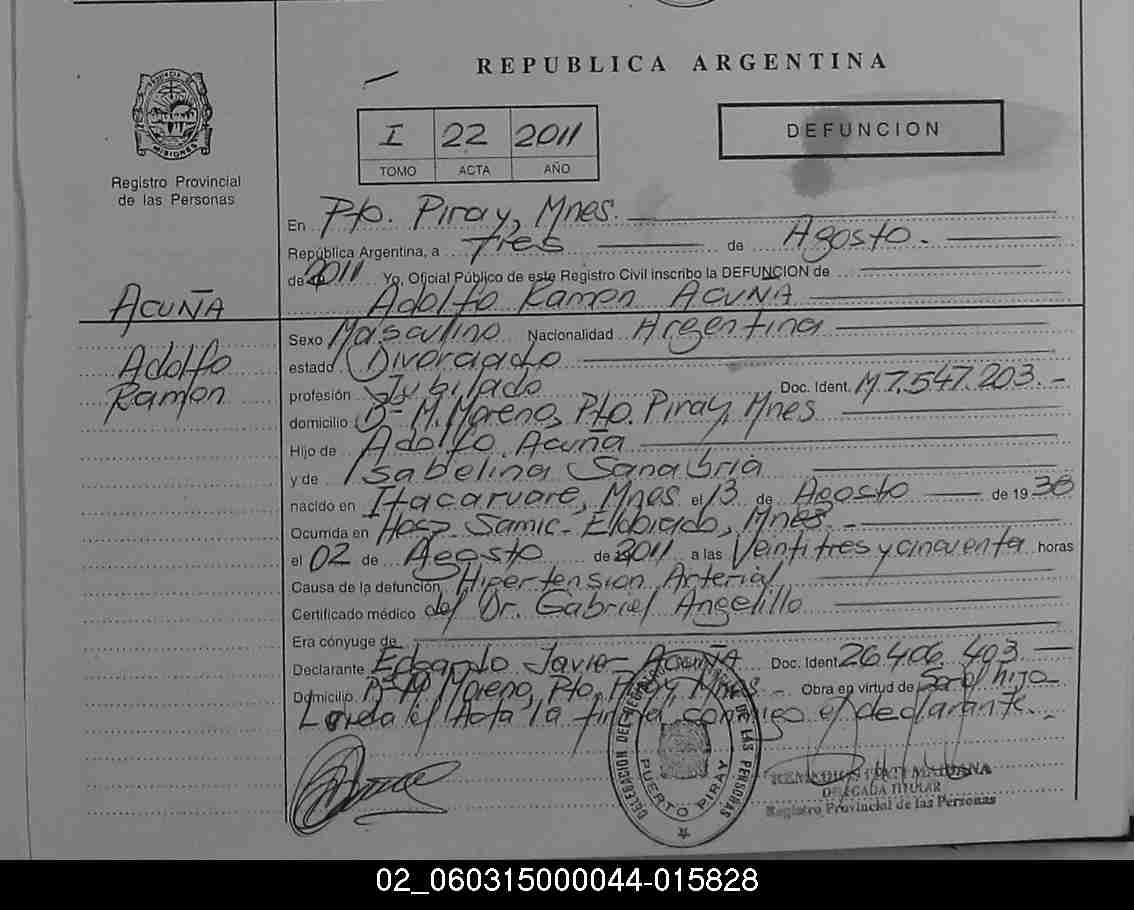 REPUBLICA ARGENTINA
I 22 2011
TOMO ACTA AÑO
DEFUNCION
PROVINCIA DE MISIONES
Registro Provincial
de las Personas
ACUÑA
Adolfo
Ramon
En Pto. Piray, Mnes.
República Argentina, a tres de Agosto.
de 2011 Yo, Oficial Público de este Registro Civil inscribo la DEFUNCION de
Adolfo Ramon ACUÑA
Sexo Masculino Nacionalidad Argentina
estado Divorciado
profesión Jubilado Doc. Ident. M7.547.203.-
domicilio Bº M. Moreno, Pto. Piray, Mnes
Hijo de Adolfo Acuña
y de Isabelina Sanabria
nacido en Itacaruare, Mnes el 13 de Agosto de 1936
Ocurrida en Hosp. Samic - Eldorado, Mnes. -
el 02 de Agosto de 2011 a las Veintitres y cincuenta horas
Causa de la defunción Hipertension Arterial
Certificado médico del Dr. Gabriel Angelillo
Era cónyuge de
Declarante Edgardo Javier ACUÑA Doc. Ident. 26.406.403
Domicilio Bº M Moreno, Pto. Piray Mnes - Obra en virtud de Ser el hijo
Leida el Acta la firma conmigo el declarante.-
DELEGACION DEL REGISTRO PROVINCIAL DE LAS PERSONAS
PUERTO PIRAY
MARIANA
DELEGADA TITULAR
Registro Provincial de las Personas
02_060315000044-015828